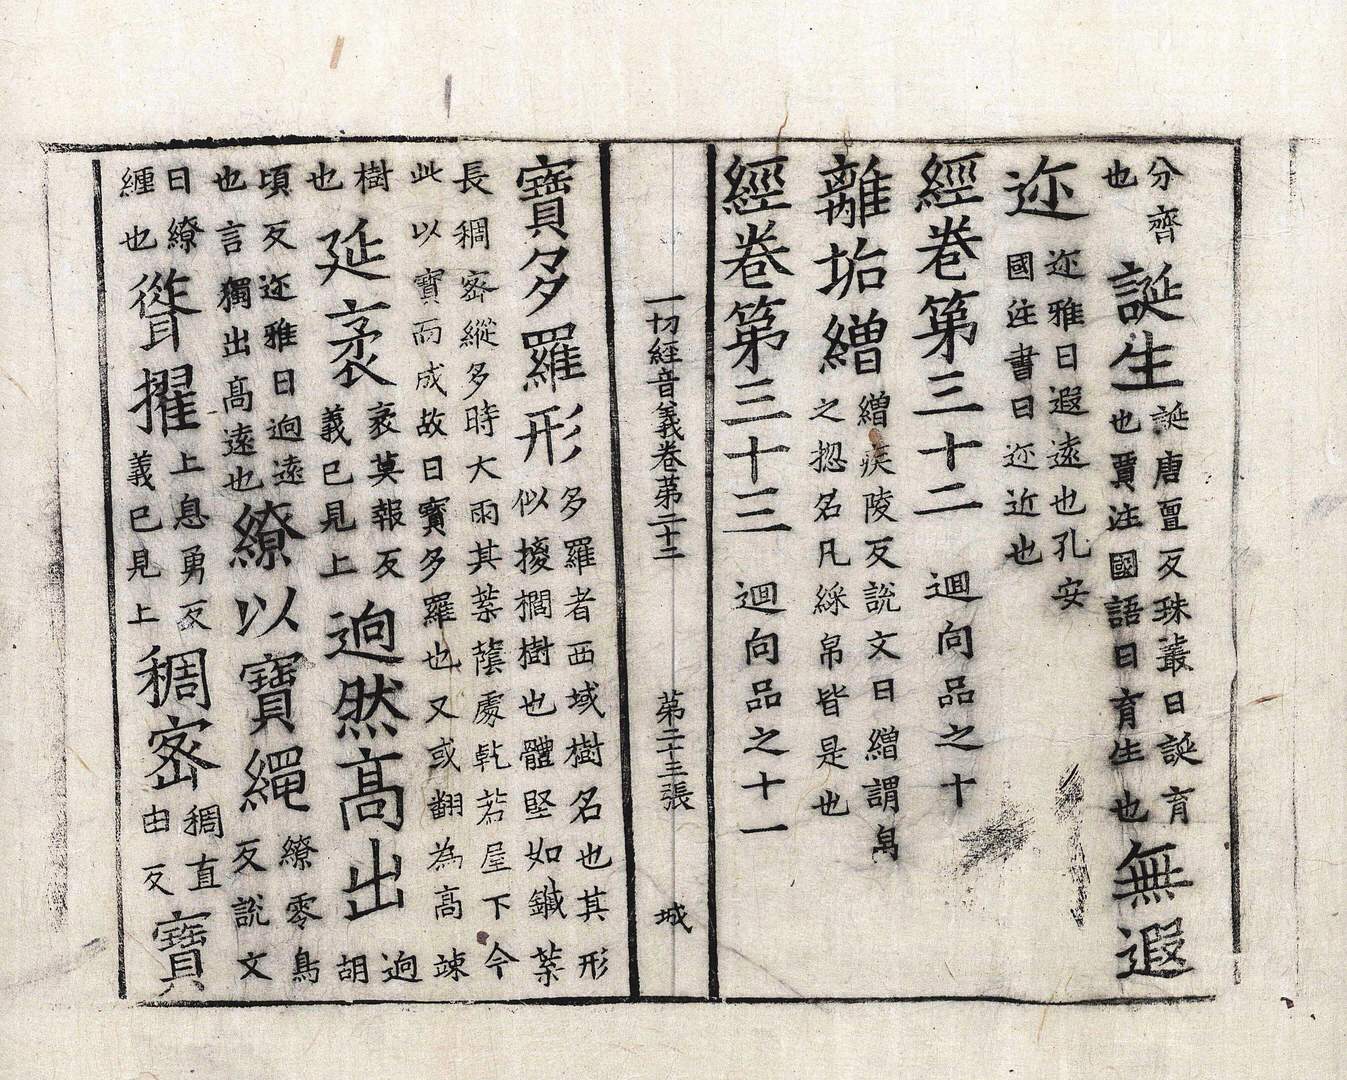 分齊也誕生誕唐亶反珠叢曰誕育也賈注國語曰育生也無遐
迩迩雅曰遐遠也孔安國注書曰迩近也
經卷第三十二　迴向品之十
離垢繒繒疾陵反說文曰繒謂帛之揔名凡綵帛皆是也
經卷第三十三　迴向品之十一
一切經音義卷第二十二　第二十三張　城
寶多羅形多羅者西域樹名也其形似椶櫚樹也體堅如鐵葉
長稠密縱多時大雨其葉蔭處乾若屋下今此以寶而成故曰寶多羅也又或翻為高竦
樹也延袤袤莫報反義已見上迥然高出迥胡
頃反迩雅曰迥遠也言獨出高遠也繚以寶繩繚零鳥反說文
曰繚纏也聳擢上息勇反義已見上稠密稠直由反寶